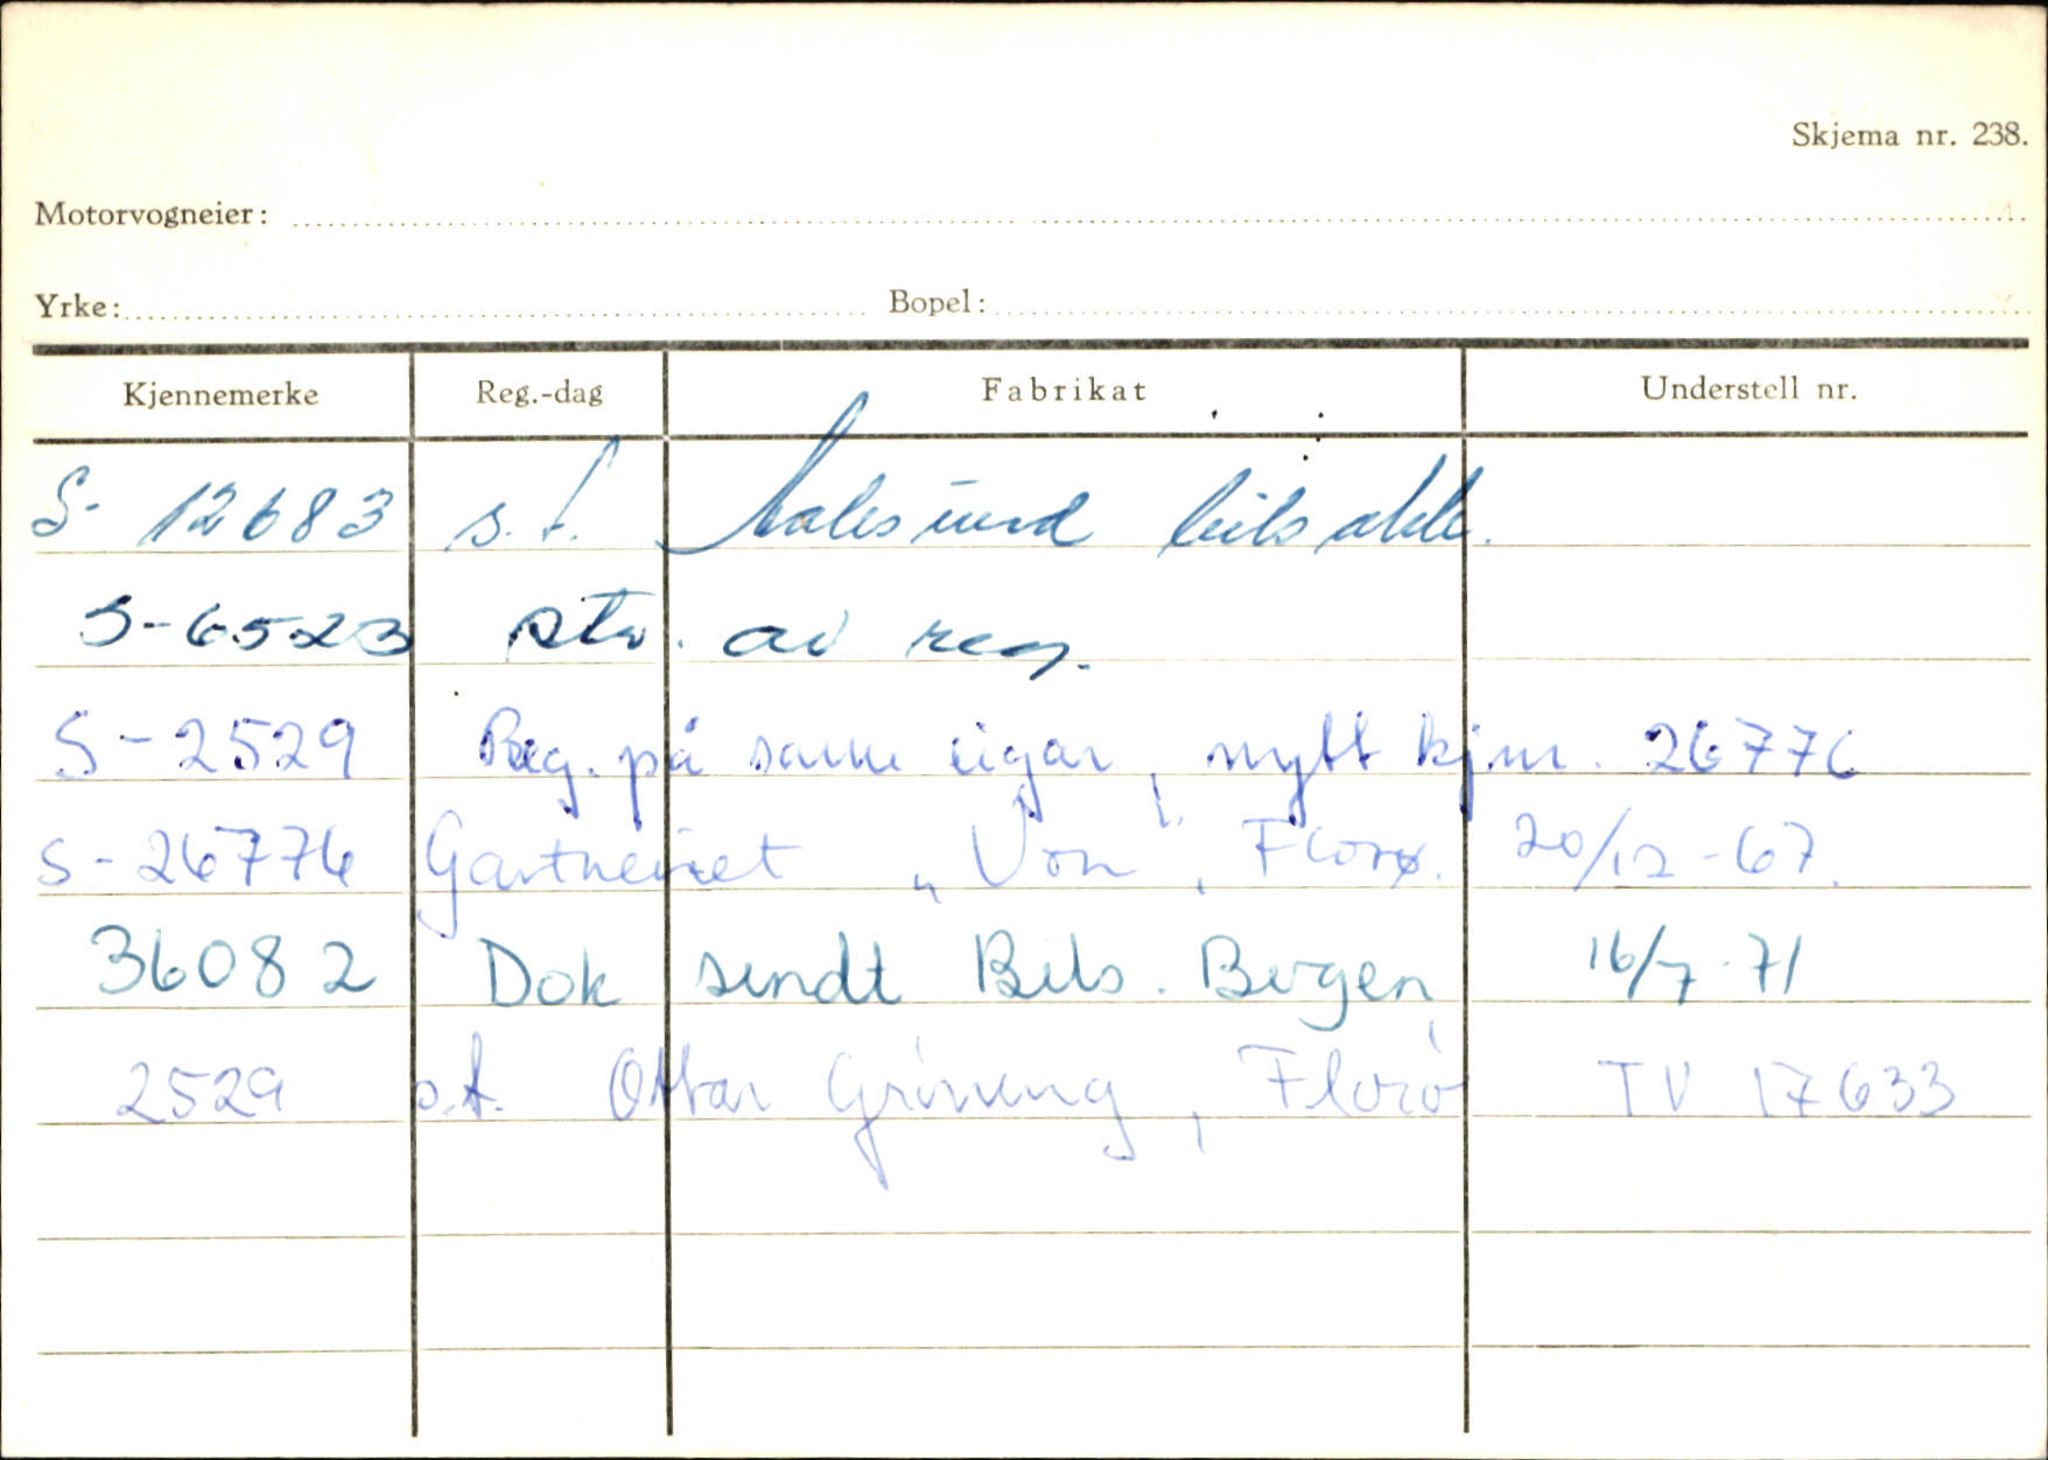 Skjema nr. 238.
Motorvogneier:
Yrke: Bopel:
Kjennemerke Reg.-dag Fabrikat Understell nr.
S- 12683 s.t. Aalesund bilsakk.
S-6523 str. av reg.
S-2529 Reg. på same eigar, nytt kjm. 26776
S-26776 Gartneriet "Von", Florø. 20/12-67.
36082 Dok sendt Bils. Bergen 16/7-71
2529 s.t. Ottar Gröneng, Florö TV 17633